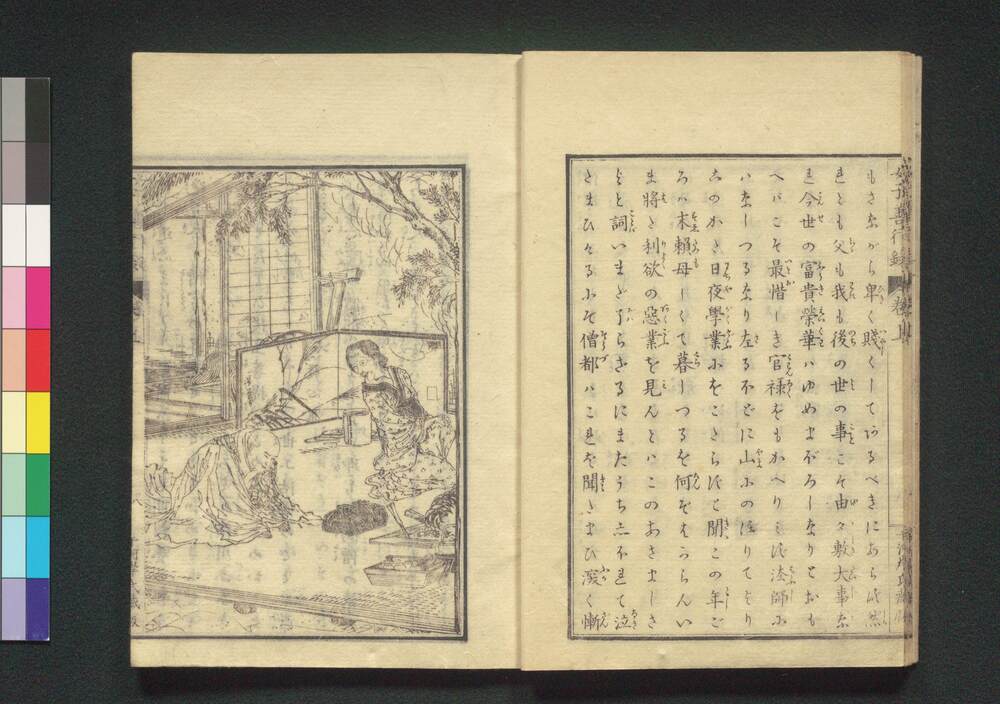 もさながら卑く賤くしてあるべきにあらず然
れども父も我も後の世の事こそ由々敷大事な
れ今世の富貴榮華ハゆめまぼろしなりとおも
へバこそ最惜しき官禄をもかへりミず法師に
ハなしつるなり左るほどに山にの注りてより
このかた日夜學業におこたらずと聞この年ご
ろハ末賴母しくて暮しつるを何ぞはからんい
ま將た利欲の惡業を見んとハこのあさましさ
よと詞いまだ了らざるにまたうちしほれて泣
たまひけるにぞ僧都ハこれを聞たまひ深く慚